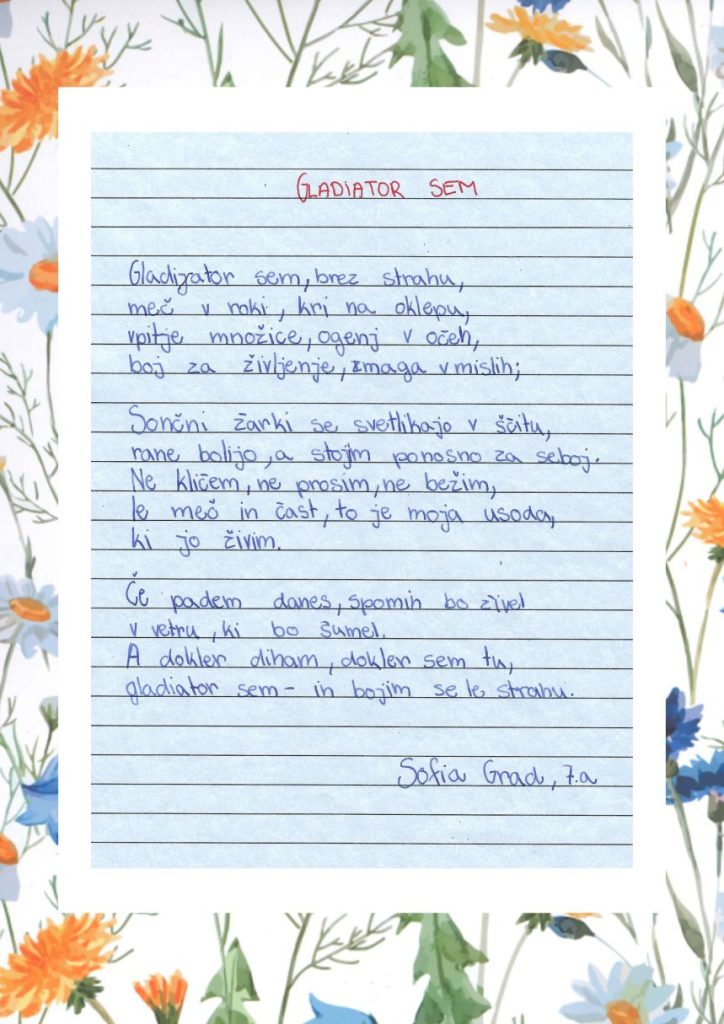 GLADIATOR SEM
Gladijator sem, brez strahu,
meč v roki, kri na oklepu,
vpitje množice, ogenj v očeh,
boj za življenje, zmaga v mislih;
Sončni žarki se svetlikajo v ščitu,
rane bolijo, a stojim ponosno za seboj.
Ne kličem, ne prosim, ne bežim,
le meč in čast, to je moja usoda,
ki jo živim.
Če padem danes, spomin bo živel
v vetru, ki bo šumel.
A dokler diham, dokler sem tu,
gladiator sem - in bojim se le strahu.
Sofia Grad, 7.a